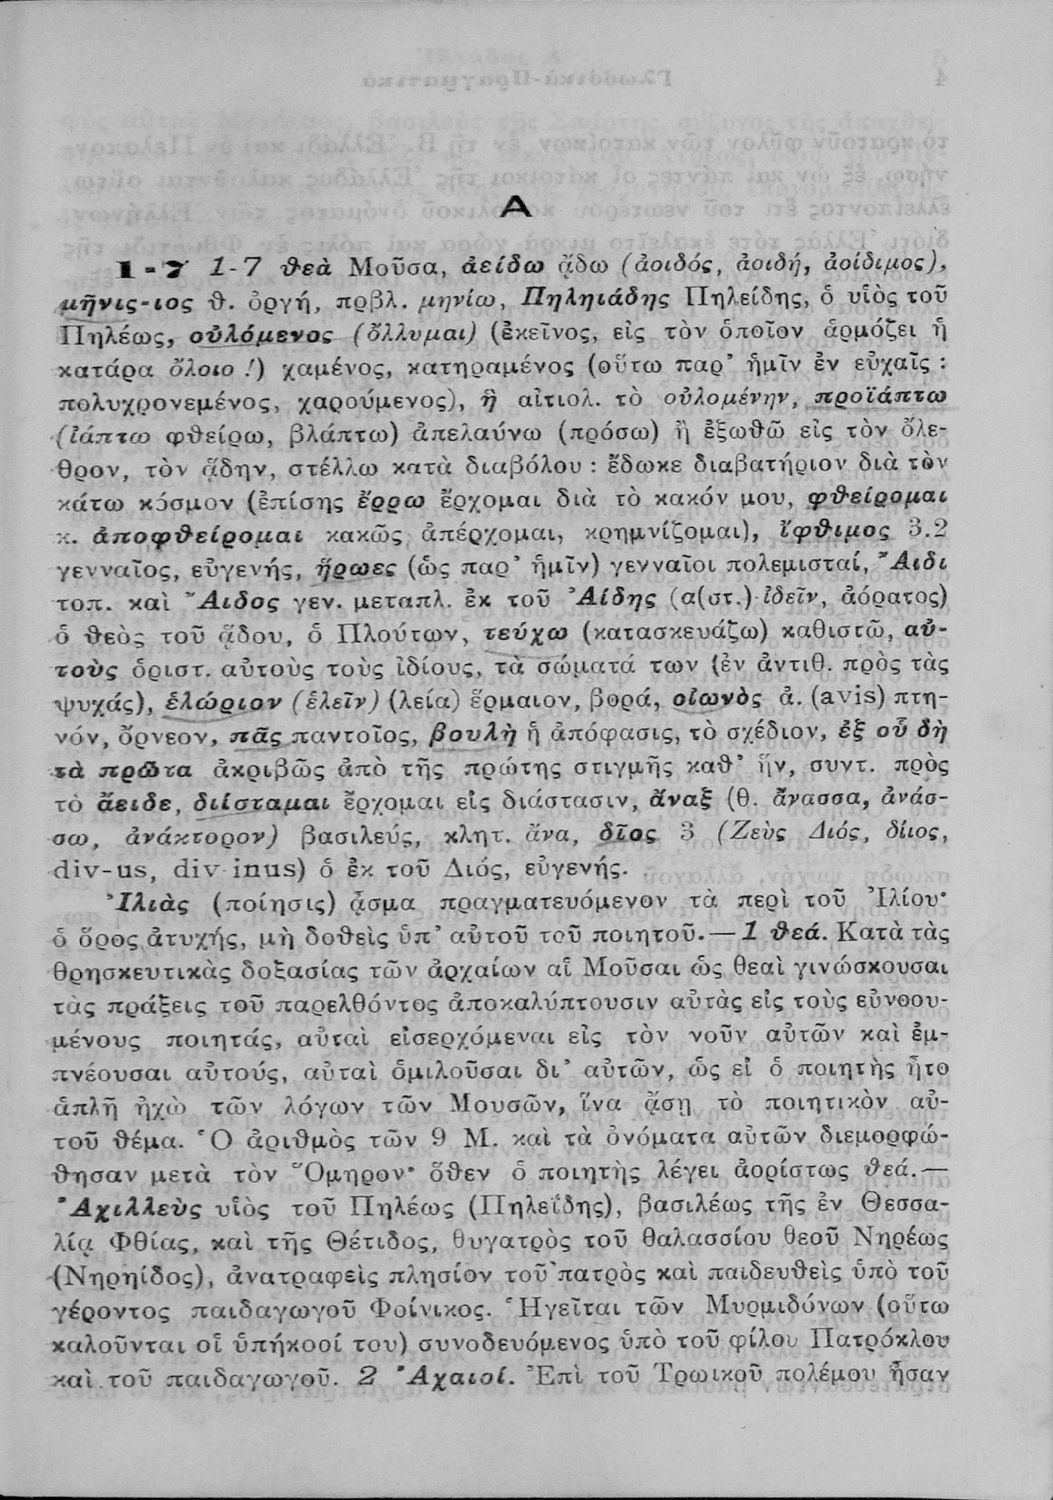 Α
1-7 1-7 θεὰ Μοῦσα, ἀείδω ᾄδω (ἀοιδός, ἀοιδή, ἀοίδιμος),
μῆνις-ιος θ. ὀργή, πρβλ. μηνίω, Πηληιάδης Πηλείδης, ὁ υἱὸς τοῦ
Πηλέως, οὐλόμενος (ὄλλυμαι) (ἐκεῖνος, εἰς τὸν ὁποῖον ἁρμόζει ἡ
κατάρα ὄλοιο !) χαμένος, κατηραμένος (οὕτω παρ᾽ ἡμῖν ἐν εὐχαῖς :
πολυχρονεμένος, χαρούμενος), ἢ αἰτιολ. τὸ οὐλομένην, προϊάπτω
(ἰάπτω φθείρω, βλάπτω) ἀπελαύνω (πρόσω) ἢ ἐξωθῶ εἰς τὸν ὄλε-
θρον, τὸν ᾅδην, στέλλω κατὰ διαβόλου : ἔδωκε διαβατήριον διὰ τὸν
κάτω κόσμον (ἐπίσης ἔρρω ἔρχομαι διὰ τὸ κακόν μου, φθείρομαι
κ. ἀποφθείρομαι κακῶς ἀπέρχομαι, κρημνίζομαι), ἴφθιμος 3.2
γενναῖος, εὐγενής, ἥρωες (ὡς παρ᾽ ἡμῖν) γενναῖοι πολεμισταί, Ἄιδι
τοπ. καὶ Ἄιδος γεν. μεταπλ. ἐκ τοῦ Ἀίδης (α(στ.) ἰδεῖν, ἀόρατος)
ὁ θεὸς τοῦ ᾅδου, ὁ Πλούτων, τεύχω (κατασκευάζω) καθιστῶ, αὐ-
τοὺς ὁριστ. αὐτοὺς τοὺς ἰδίους, τὰ σώματά των (ἐν ἀντιθ. πρὸς τὰς
ψυχάς), ἑλώριον (ἑλεῖν) (λεία) ἕρμαιον, βορά, οἰωνὸς ἀ. (avis) πτη-
νόν, ὄρνεον, πᾶς παντοῖος, βουλὴ ἡ ἀπόφασις, τὸ σχέδιον, ἐξ οὗ δὴ
τὰ πρῶτα ἀκριβῶς ἀπὸ τῆς πρώτης στιγμῆς καθ᾽ ἥν, συντ. πρὸς
τὸ ἄειδε, διίσταμαι ἔρχομαι εἰς διάστασιν, ἄναξ (θ. ἄνασσα, ἀνάσ-
σω, ἀνάκτορον) βασιλεύς, κλητ. ἄνα, δῖος 3 (Ζεὺς Διός, δίιος,
div-us, div inus) ὁ ἐκ τοῦ Διός, εὐγενής.
Ἰλιὰς (ποίησις) ᾆσμα πραγματευόμενον τὰ περὶ τοῦ Ἰλίου·
ὁ ὅρος ἀτυχής, μὴ δοθεὶς ὑπ᾽ αὐτοῦ τοῦ ποιητοῦ.—1 θεά. Κατὰ τὰς
θρησκευτικὰς δοξασίας τῶν ἀρχαίων αἱ Μοῦσαι ὡς θεαὶ γινώσκουσαι
τὰς πράξεις τοῦ παρελθόντος ἀποκαλύπτουσιν αὐτὰς εἰς τοὺς εὐνοου-
μένους ποιητάς, αὐταὶ εἰσερχόμεναι εἰς τὸν νοῦν αὐτῶν καὶ ἐμ-
πνέουσαι αὐτούς, αὐταὶ ὁμιλοῦσαι δι᾽ αὐτῶν, ὡς εἰ ὁ ποιητὴς ἦτο
ἁπλῆ ἠχὼ τῶν λόγων τῶν Μουσῶν, ἵνα ᾄσῃ τὸ ποιητικὸν αὐ-
τοῦ θέμα. Ὁ ἀριθμὸς τῶν 9 Μ. καὶ τὰ ὀνόματα αὐτῶν διεμορφώ-
θησαν μετὰ τὸν Ὅμηρον· ὅθεν ὁ ποιητὴς λέγει ἀορίστως θεά.—
Ἀχιλλεὺς υἱὸς τοῦ Πηλέως (Πηλεΐδης), βασιλέως τῆς ἐν Θεσσα-
λίᾳ Φθίας, καὶ τῆς Θέτιδος, θυγατρὸς τοῦ θαλασσίου θεοῦ Νηρέως
(Νηρηίδος), ἀνατραφεὶς πλησίον τοῦ πατρὸς καὶ παιδευθεὶς ὑπὸ τοῦ
γέροντος παιδαγωγοῦ Φοίνικος. Ἡγεῖται τῶν Μυρμιδόνων (οὕτω
καλοῦνται οἱ ὑπήκοοί του) συνοδευόμενος ὑπὸ τοῦ φίλου Πατρόκλου
καὶ τοῦ παιδαγωγοῦ. 2 Ἀχαιοί. Ἐπὶ τοῦ Τρωικοῦ πολέμου ἦσαν